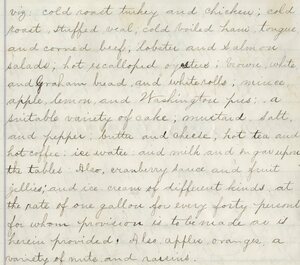 viz: cold roast turkey and chicken; cold
roast stuffed veal, cold boiled ham, tongue
and corned beef, lobster and salmon
salads; hot escalloped oysters; brown, white
and Graham bread and white rolls; mince
apple, lemon, and Washington pies; a
suitable variety of cake; mustard, salt,
and pepper; butter and cheese; hot tea and
hot coffee; ice water and milk and sugar upon
the tables. Also, cranberry sauce and fruit
jellies; and ice cream of different kinds at
the rate of one gallon for every forty persons
for whom provision is to be made as is
herein provided. Also apples, oranges, a
variety of nuts and raisins.